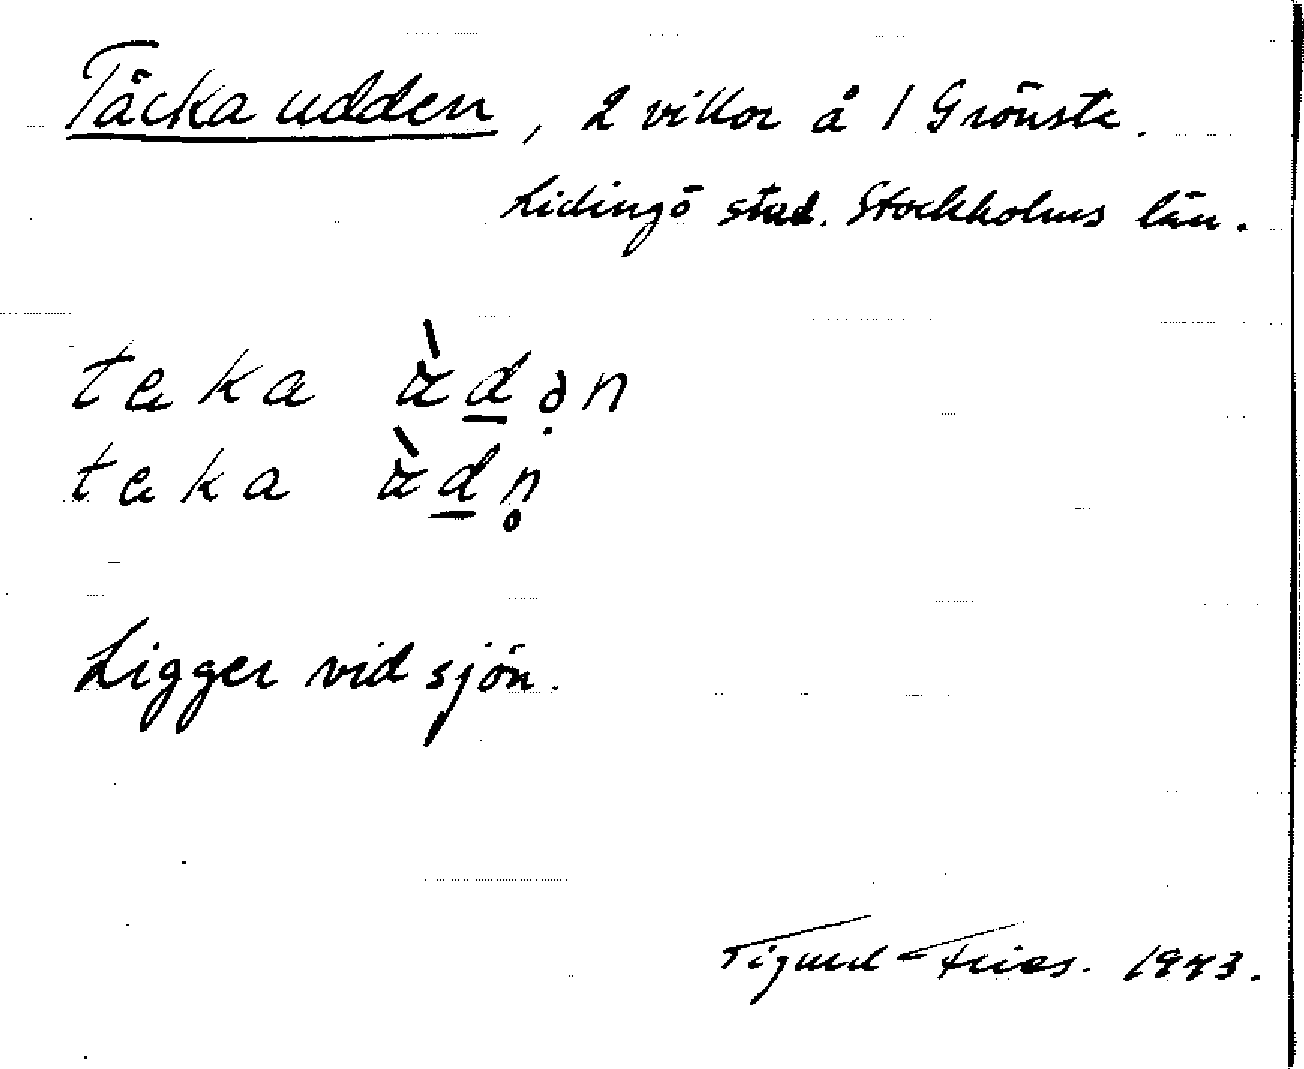 Täcka udden, 2 villor å 1 Grönsta.
Lidingö stad. Stockholms län.
taka àdən
taka àdn̥
Ligger vid sjön.
Sigurd Fries. 1943.